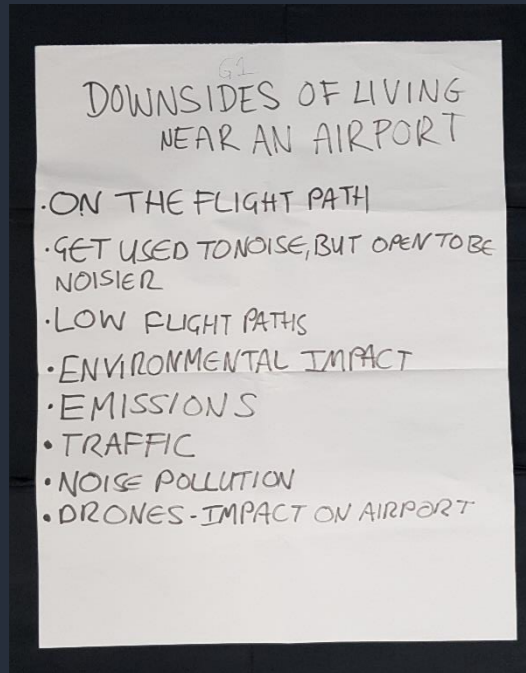 G1
DOWNSIDES OF LIVING
NEAR AN AIRPORT
·ON THE FLIGHT PATH
·GET USED TO NOISE, BUT OPEN TO BE
NOISIER
·LOW FLIGHT PATHS
·ENVIRONMENTAL IMPACT
·EMISSIONS
·TRAFFIC
·NOISE POLLUTION
·DRONES - IMPACT ON AIRPORT